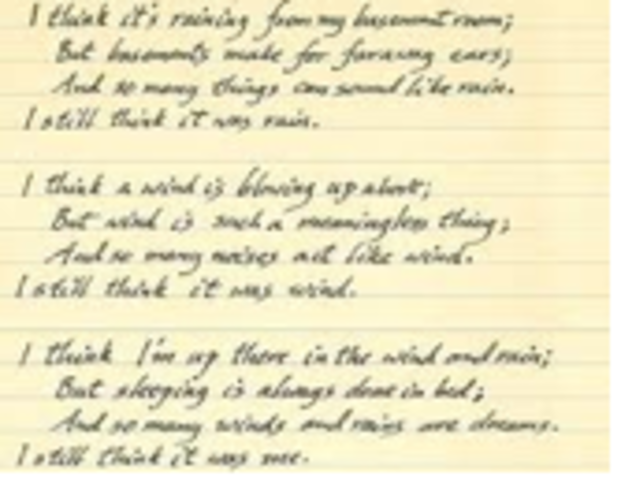 I think it's raining from my basement room;
But basements make for faraway ears;
And so many things can sound like rain.
I still think it was rain.
I think a wind is blowing up above;
But wind is such a meaningless thing;
And so many noises act like wind.
I still think it was wind.
I think I'm up there in the wind and rain;
But sleeping is always done in bed;
And so many winds and rains are dreams.
I still think it was me.